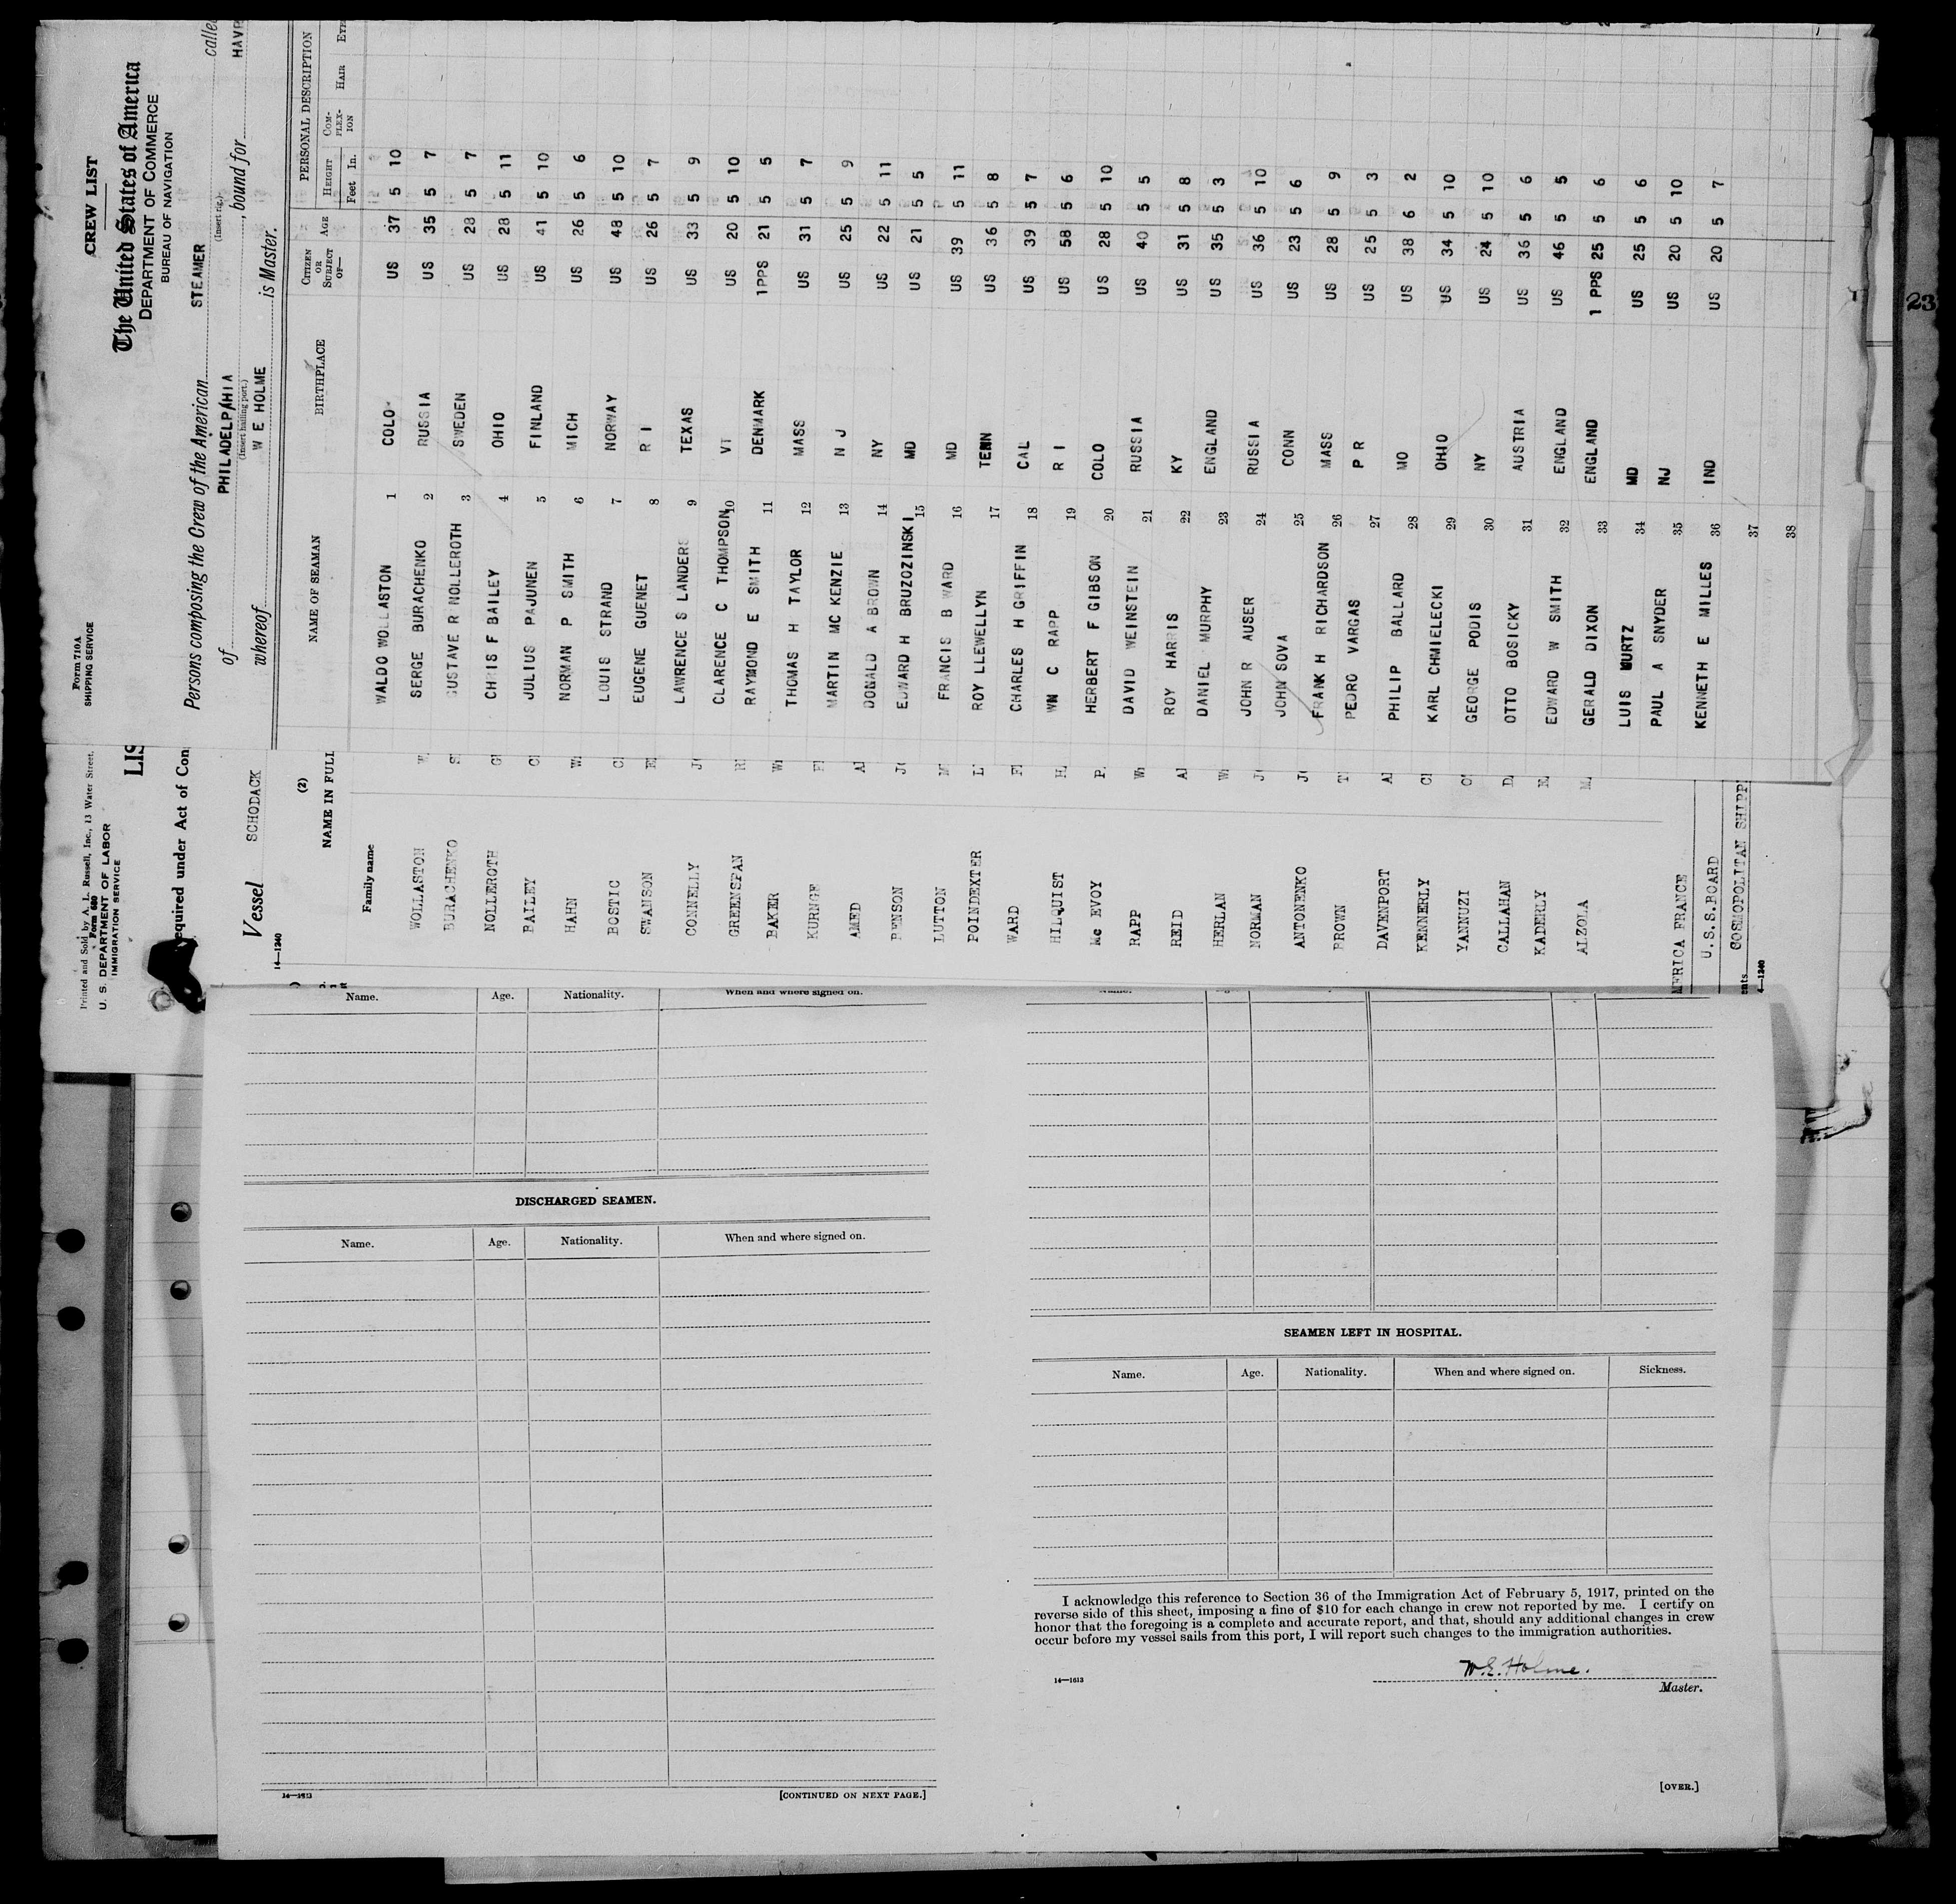 Form 710A
SHIPPING SERVICE
CREW LIST
The United States of America
DEPARTMENT OF COMMERCE
BUREAU OF NAVIGATION
Persons composing the Crew of the American STEAMER
(Insert rig.)
of PHILADELPAHIA, bound for
(Insert hailing port.)
whereof W E HOLME is Master.
NAME OF SEAMAN BIRTHPLACE CITIZEN OR SUBJECT OF— AGE PERSONAL DESCRIPTION
HEIGHT COM-PLEX-ION HAIR
Feet In.
WALDO WOLLASTON 1 COLO US 37 5 10
SERGE BURACHENKO 2 RUSSIA US 35 5 7
GUSTAVE R NOLLEROTH 3 SWEDEN US 28 5 7
CHRIS F BAILEY 4 OHIO US 28 5 11
JULIUS PAJUNEN 5 FINLAND US 41 5 10
NORMAN P SMITH 6 MICH US 26 5 6
LOUIS STRAND 7 NORWAY US 48 5 10
EUGENE GUENET 8 R I US 26 5 7
LAWRENCE S LANDERS 9 TEXAS US 33 5 9
CLARENCE C THOMPSON 10 VT US 20 5 10
RAYMOND E SMITH 11 DENMARK 1PPS 21 5 5
THOMAS H TAYLOR 12 MASS US 31 5 7
MARTIN MC KENZIE 13 N J US 25 5 9
DONALD A BROWN 14 NY US 22 5 11
EDWARD H BRUZOZINSKI 15 MD US 21 5 5
FRANCIS B WARD 16 MD US 39 5 11
ROY LLEWELLYN 17 TENN US 36 5 8
CHARLES H GRIFFIN 18 CAL US 39 5 7
WM C RAPP 19 R I US 58 5 6
HERBERT F GIBSON 20 COLO US 28 5 10
DAVID WEINSTEIN 21 RUSSIA US 40 5 5
ROY HARRIS 22 KY US 31 5 8
DANIEL MURPHY 23 ENGLAND US 35 5 3
JOHN R AUSER 24 RUSSIA US 36 5 10
JOHN SOVA 25 CONN US 23 5 6
FRANK H RICHARDSON 26 MASS US 28 5 9
PEDRO VARGAS 27 P R US 25 5 3
PHILIP BALLARD 28 MO US 38 6 2
KARL CHMIELECKI 29 OHIO US 34 5 10
GEORGE PODIS 30 NY US 24 5 10
OTTO BOSICKY 31 AUSTRIA US 36 5 6
EDWARD W SMITH 32 ENGLAND US 46 5 5
GERALD DIXON 33 ENGLAND 1 PPS 25 5 6
LUIS WURTZ 34 MD US 25 5 6
PAUL A SNYDER 35 NJ US 20 5 10
KENNETH E MILLES 36 IND US 20 5 7
37
38
Printed and Sold by A. L. Russell, Inc., 13 Water Street,
Form 680
U. S. DEPARTMENT OF LABOR
IMMIGRATION SERVICE
equired under Act of Con
Vessel SCHODACK
14—1240
(2)
NAME IN FULL
Family name
WOLLASTON
BURACHENKO
NOLLEROTH
BAILEY
HAHN
BOSTIC
SWANSON
CONNELLY
GREENSPAN
BAKER
KURNGE
AMED
BENSON
LUTTON
POINDEXTER
WARD
HILQUIST
Mc EVOY
RAPP
REID
HERLAN
NORMAN
ANTONENKO
BROWN
DAVENPORT
KENNERLY
YANNUZI
CALLAHAN
KADERLY
ALZOLA
MERICA FRANCE
U.S.S.BOARD
COSMOPOLITAN SHIPP
Name. Age. Nationality. When and where signed on.
DISCHARGED SEAMEN.
Name. Age. Nationality. When and where signed on.
14—1613
[CONTINUED ON NEXT PAGE.]
SEAMEN LEFT IN HOSPITAL.
Name. Age. Nationality. When and where signed on. Sickness.
I acknowledge this reference to Section 36 of the Immigration Act of February 5, 1917, printed on the
reverse side of this sheet, imposing a fine of $10 for each change in crew not reported by me. I certify on
honor that the foregoing is a complete and accurate report, and that, should any additional changes in crew
occur before my vessel sails from this port, I will report such changes to the immigration authorities.
W.E. Holme.
14—1613
Master.
[OVER.]
23